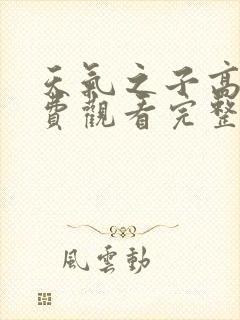 天氣之子高
費觀看完整
風雲動